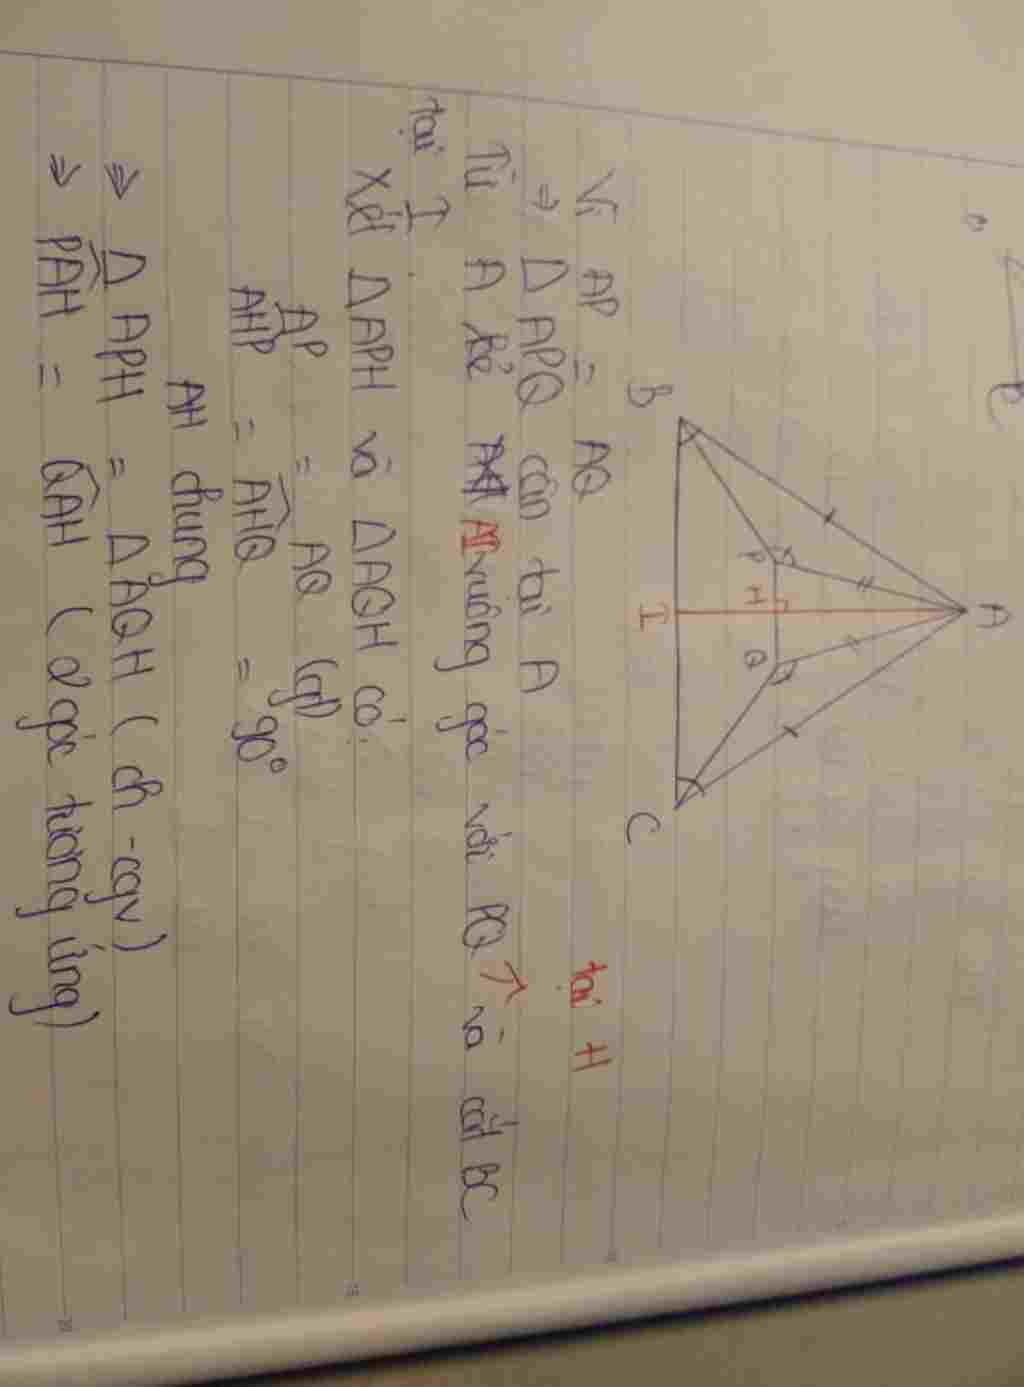 A
B
P
H
Q
I
C
Vì AP = AQ
tại H
⇒ Δ APQ cân tại A
Từ A kẻ AI vuông góc với PQ và cắt BC
tại I
Xét Δ APH và Δ AQH có:
AP = AQ (gt)
AHP = AHQ = 90°
AH chung
⇒ Δ APH = Δ AQH (ch - cgv)
⇒ PAH = QAH (2 góc tương ứng)